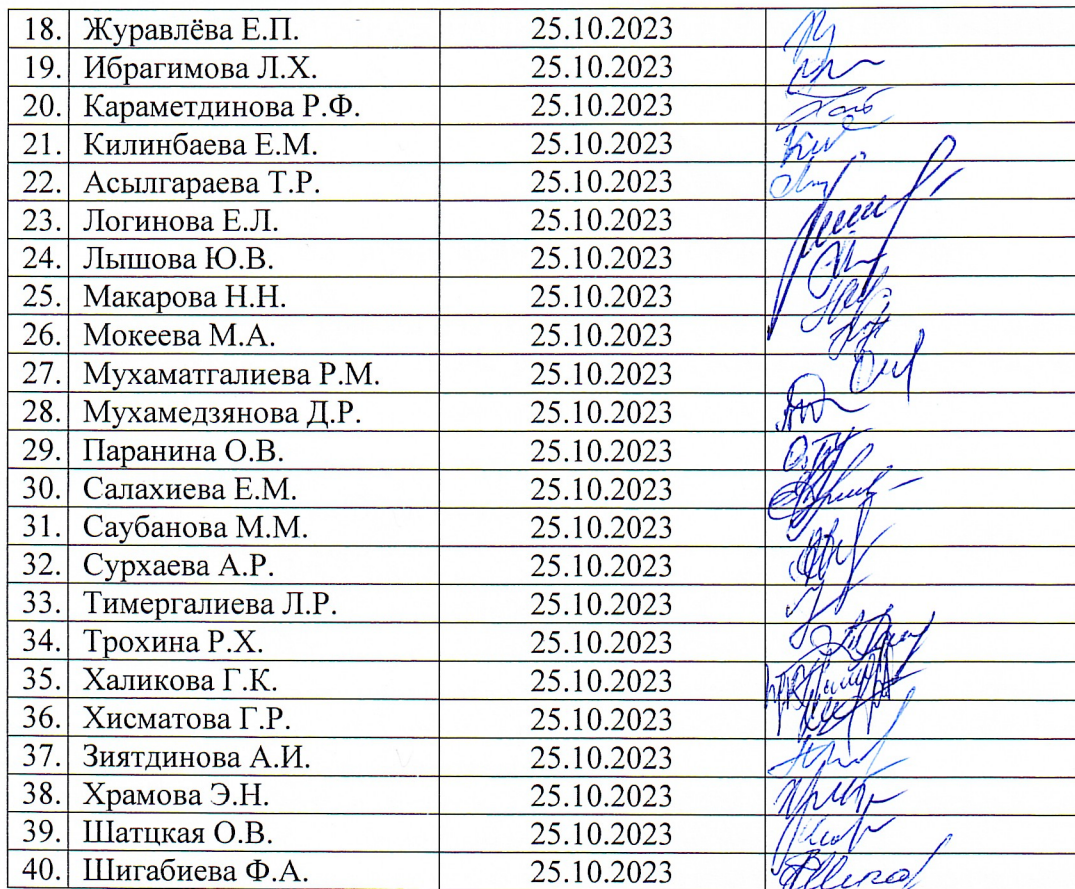 18. Журавлёва Е.П. 25.10.2023
19. Ибрагимова Л.Х. 25.10.2023
20. Караметдинова Р.Ф. 25.10.2023
21. Килинбаева Е.М. 25.10.2023
22. Асылгараева Т.Р. 25.10.2023
23. Логинова Е.Л. 25.10.2023
24. Лышова Ю.В. 25.10.2023
25. Макарова Н.Н. 25.10.2023
26. Мокеева М.А. 25.10.2023
27. Мухаматгалиева Р.М. 25.10.2023
28. Мухамедзянова Д.Р. 25.10.2023
29. Паранина О.В. 25.10.2023
30. Салахиева Е.М. 25.10.2023
31. Саубанова М.М. 25.10.2023
32. Сурхаева А.Р. 25.10.2023
33. Тимергалиева Л.Р. 25.10.2023
34. Трохина Р.Х. 25.10.2023
35. Халикова Г.К. 25.10.2023
36. Хисматова Г.Р. 25.10.2023
37. Зиятдинова А.И. 25.10.2023
38. Храмова Э.Н. 25.10.2023
39. Шатцкая О.В. 25.10.2023
40. Шигабиева Ф.А. 25.10.2023